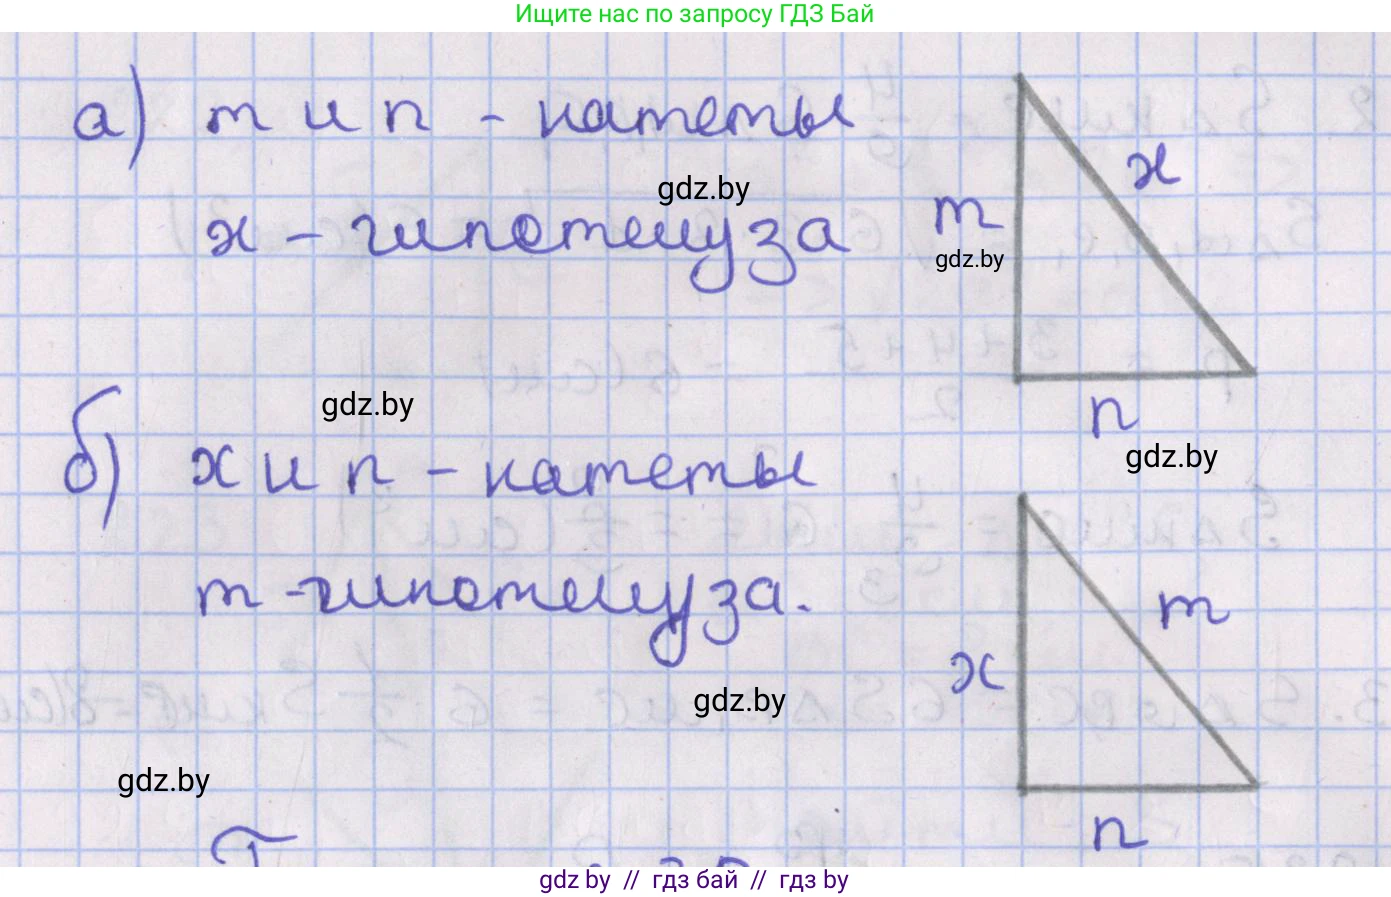 Ищите нас по запросу ГДЗ Бай
а) m и n - катеты
x
gdz.by
m
x - гипотенуза
gdz.by
n
gdz.by
gdz.by
б) x и n - катеты
m - гипотенуза.
m
x
gdz.by
gdz.by
n
gdz by // гдз бай // гдз by